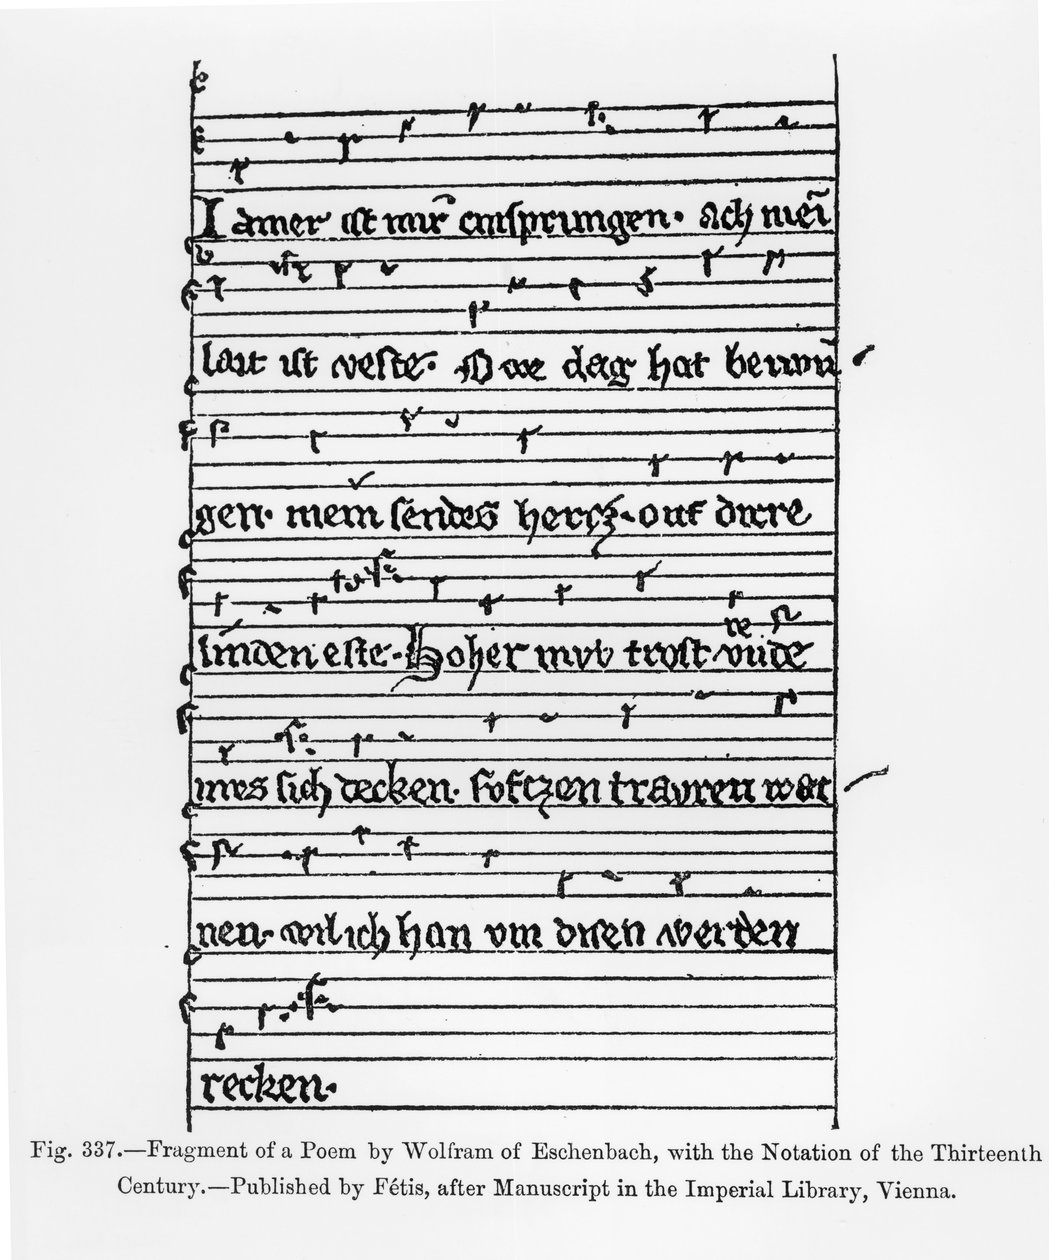 Iamer ist mir entsprungen. Ach mei
lait ist veste. Swe dag hat betwu
gen. mein sendes hercz. ouf durre
linden este. Hoher mvt trost vrivde
mes sich decken. svfczen travren wec
nen. wil ich han vm disen werden
recken.
Fig. 337.—Fragment of a Poem by Wolfram of Eschenbach, with the Notation of the Thirteenth
Century.—Published by Fétis, after Manuscript in the Imperial Library, Vienna.